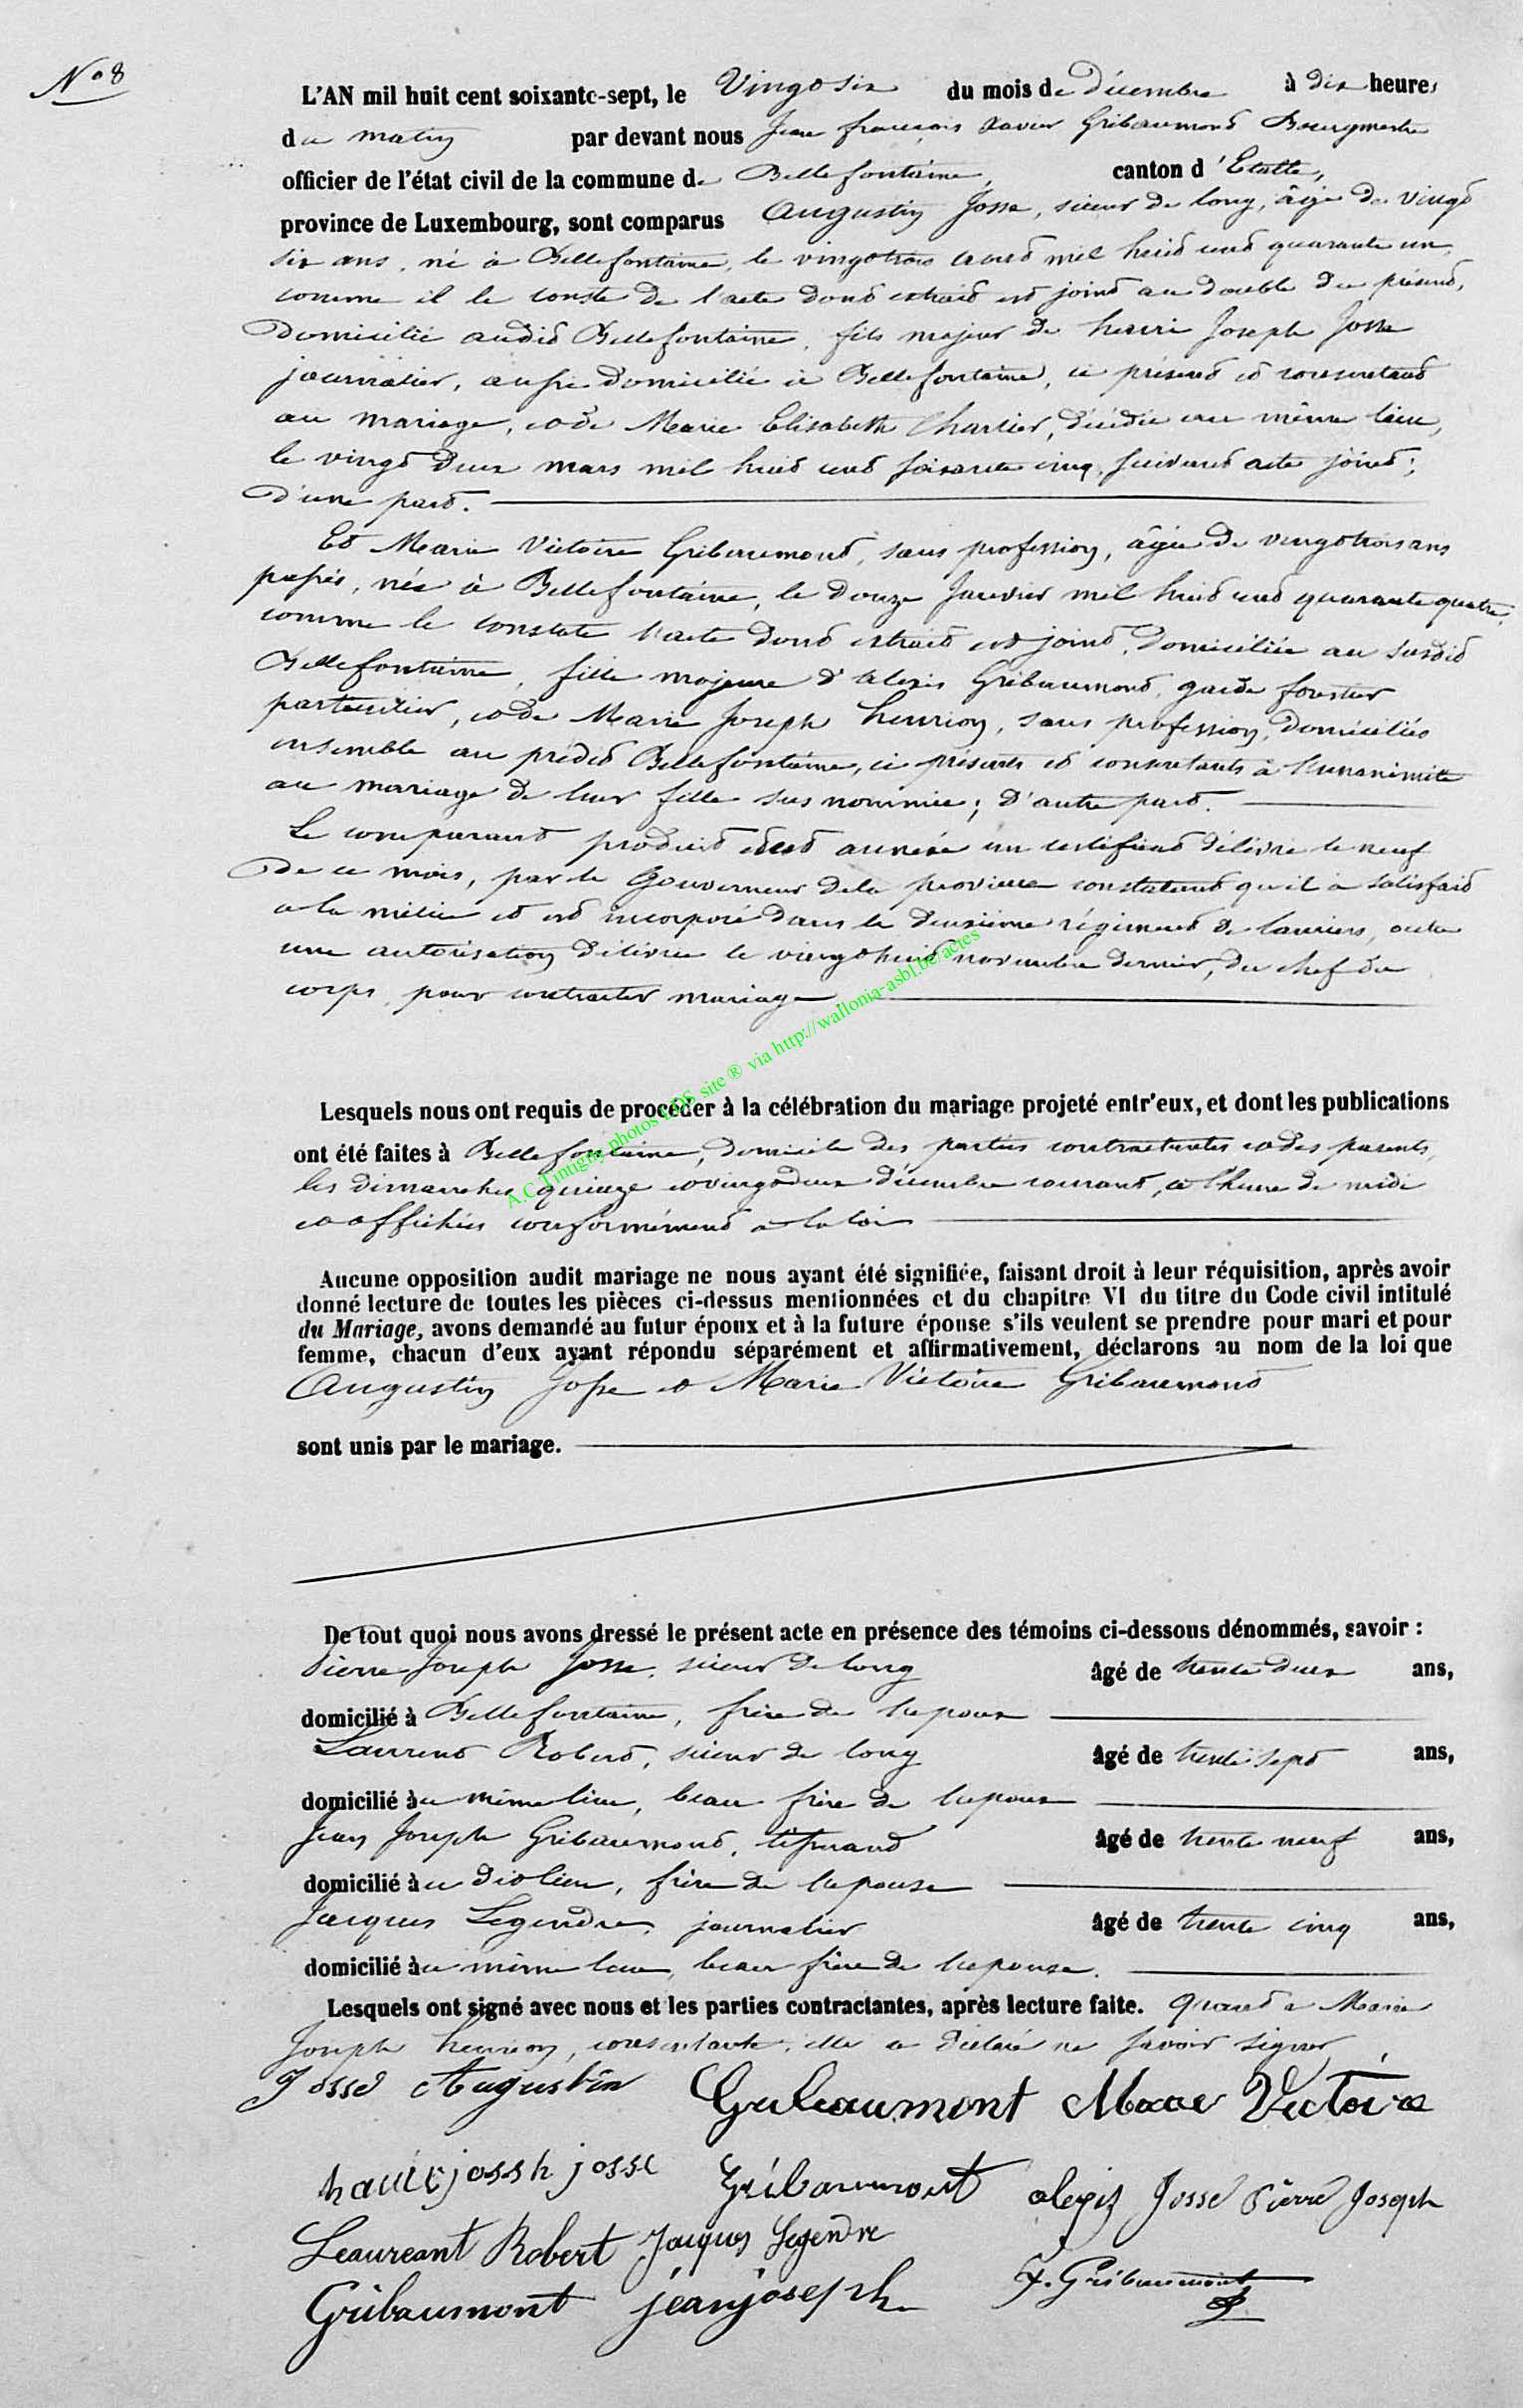 N° 8
L'AN mil huit cent soixante-sept, le Vingt six du mois de décembre à dix heures
du matin par devant nous Jean françois Xavier Gribaumont Bourgmestre
officier de l'état civil de la commune de Bellefontaine, canton d'Etalle,
province de Luxembourg, sont comparus Augustin Josse, scieur de long, âgé de vingt
six ans, né à Bellefontaine, le vingt trois août mil huit cent quarante un,
comme il le conste de l'acte dont extrait est joint au double du présent,
domicilié audit Bellefontaine, fils majeur de henri Joseph Josse
journalier, aussi domicilié à Bellefontaine, ci présent et consentant
au mariage, et de Marie Elisabeth Charlier, décédée au même lieu,
le vingt deux mars mil huit cent soixante cinq, suivant acte joint;
d'une part.
Et Marie Victoire Gribaumont, sans profession, âgée de vingt trois ans
passés, née à Bellefontaine, le douze Janvier mil huit cent quarante quatre,
comme le constate l'acte dont extrait est joint, domiciliée au susdit
Bellefontaine, fille majeure d'alexis Gribaumont, garde forestier
particulier, et de Marie Joseph henrion, sans profession, domiciliés
ensemble au prédit Bellefontaine, ci présents et consentants à l'unanimité
au mariage de leur fille sus nommée; d'autre part.
Le comparant produit et est annexé un certificat délivré le neuf
de ce mois, par le Gouverneur de la province constatant qu'il a satisfait
a la milice et est incorporé dans le deuxième régiment de lanciers, outre
une autorisation délivrée le vingt huit novembre dernier, du chef du
corps, pour contracter mariage
Lesquels nous ont requis de procéder à la célébration du mariage projeté entr'eux, et dont les publications
ont été faites à Bellefontaine, domicile des parties contractantes et des parents,
les dimanches quinze et vingt deux décembre courant, a l'heure de midi
et affichées conformément a la loi
Aucune opposition audit mariage ne nous ayant été signifiée, faisant droit à leur réquisition, après avoir
donné lecture de toutes les pièces ci-dessus mentionnées et du chapitre VI du titre du Code civil intitulé
du Mariage, avons demandé au futur époux et à la future épouse s'ils veulent se prendre pour mari et pour
femme, chacun d'eux ayant répondu séparément et affirmativement, déclarons au nom de la loi que
Augustin Josse et Marie Victoire Gribaumont
sont unis par le mariage.
De tout quoi nous avons dressé le présent acte en présence des témoins ci-dessous dénommés, savoir :
Pierre Joseph Josse, scieur de long âgé de trente deux ans,
domicilié à Bellefontaine, frère de l'epoux
Laurent Robert, scieur de long âgé de trente sept ans,
domicilié au même lieu, beau frère de l'epoux
Jean Joseph Gribaumont, tisserand âgé de trente neuf ans,
domicilié au dit lieu, frère de l'epouse
Jacques Legendre, journalier âgé de trente cinq ans,
domicilié au même lieu, beau frère de l'epouse.
Lesquels ont signé avec nous et les parties contractantes, après lecture faite. Quant a Marie
Joseph henrion, consentante, elle a déclaré ne savoir signer
Josse Augustin Gribaumont Marie Victoire
josse Gribaumont alexis Josse Pierre Joseph
Leaureant Robert Jacques Legendre
Gribaumont jean joseph X. Gribaumont
A.C.Tintigny photos LDS site ® via http://wallonia-asbl.be/actes